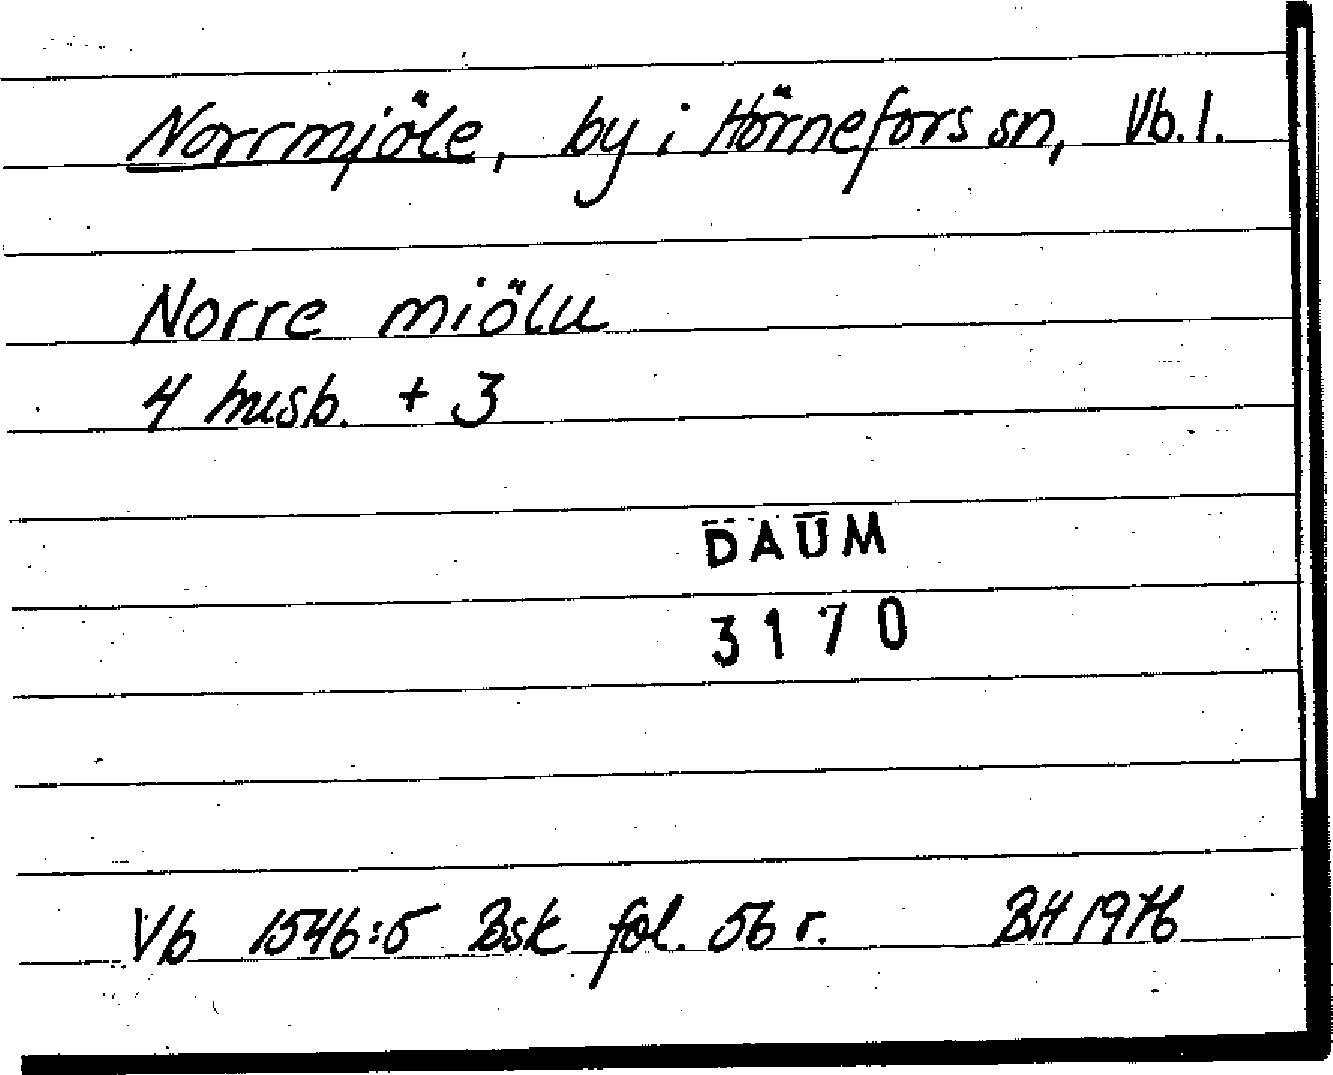 Norrmjöle, by i Hörnefors sn, Vb. l.
Norre miölu
4 husb. + 3
DAUM
3170
Vb 1546:5 Bsk fol. 56 r. BH 1976